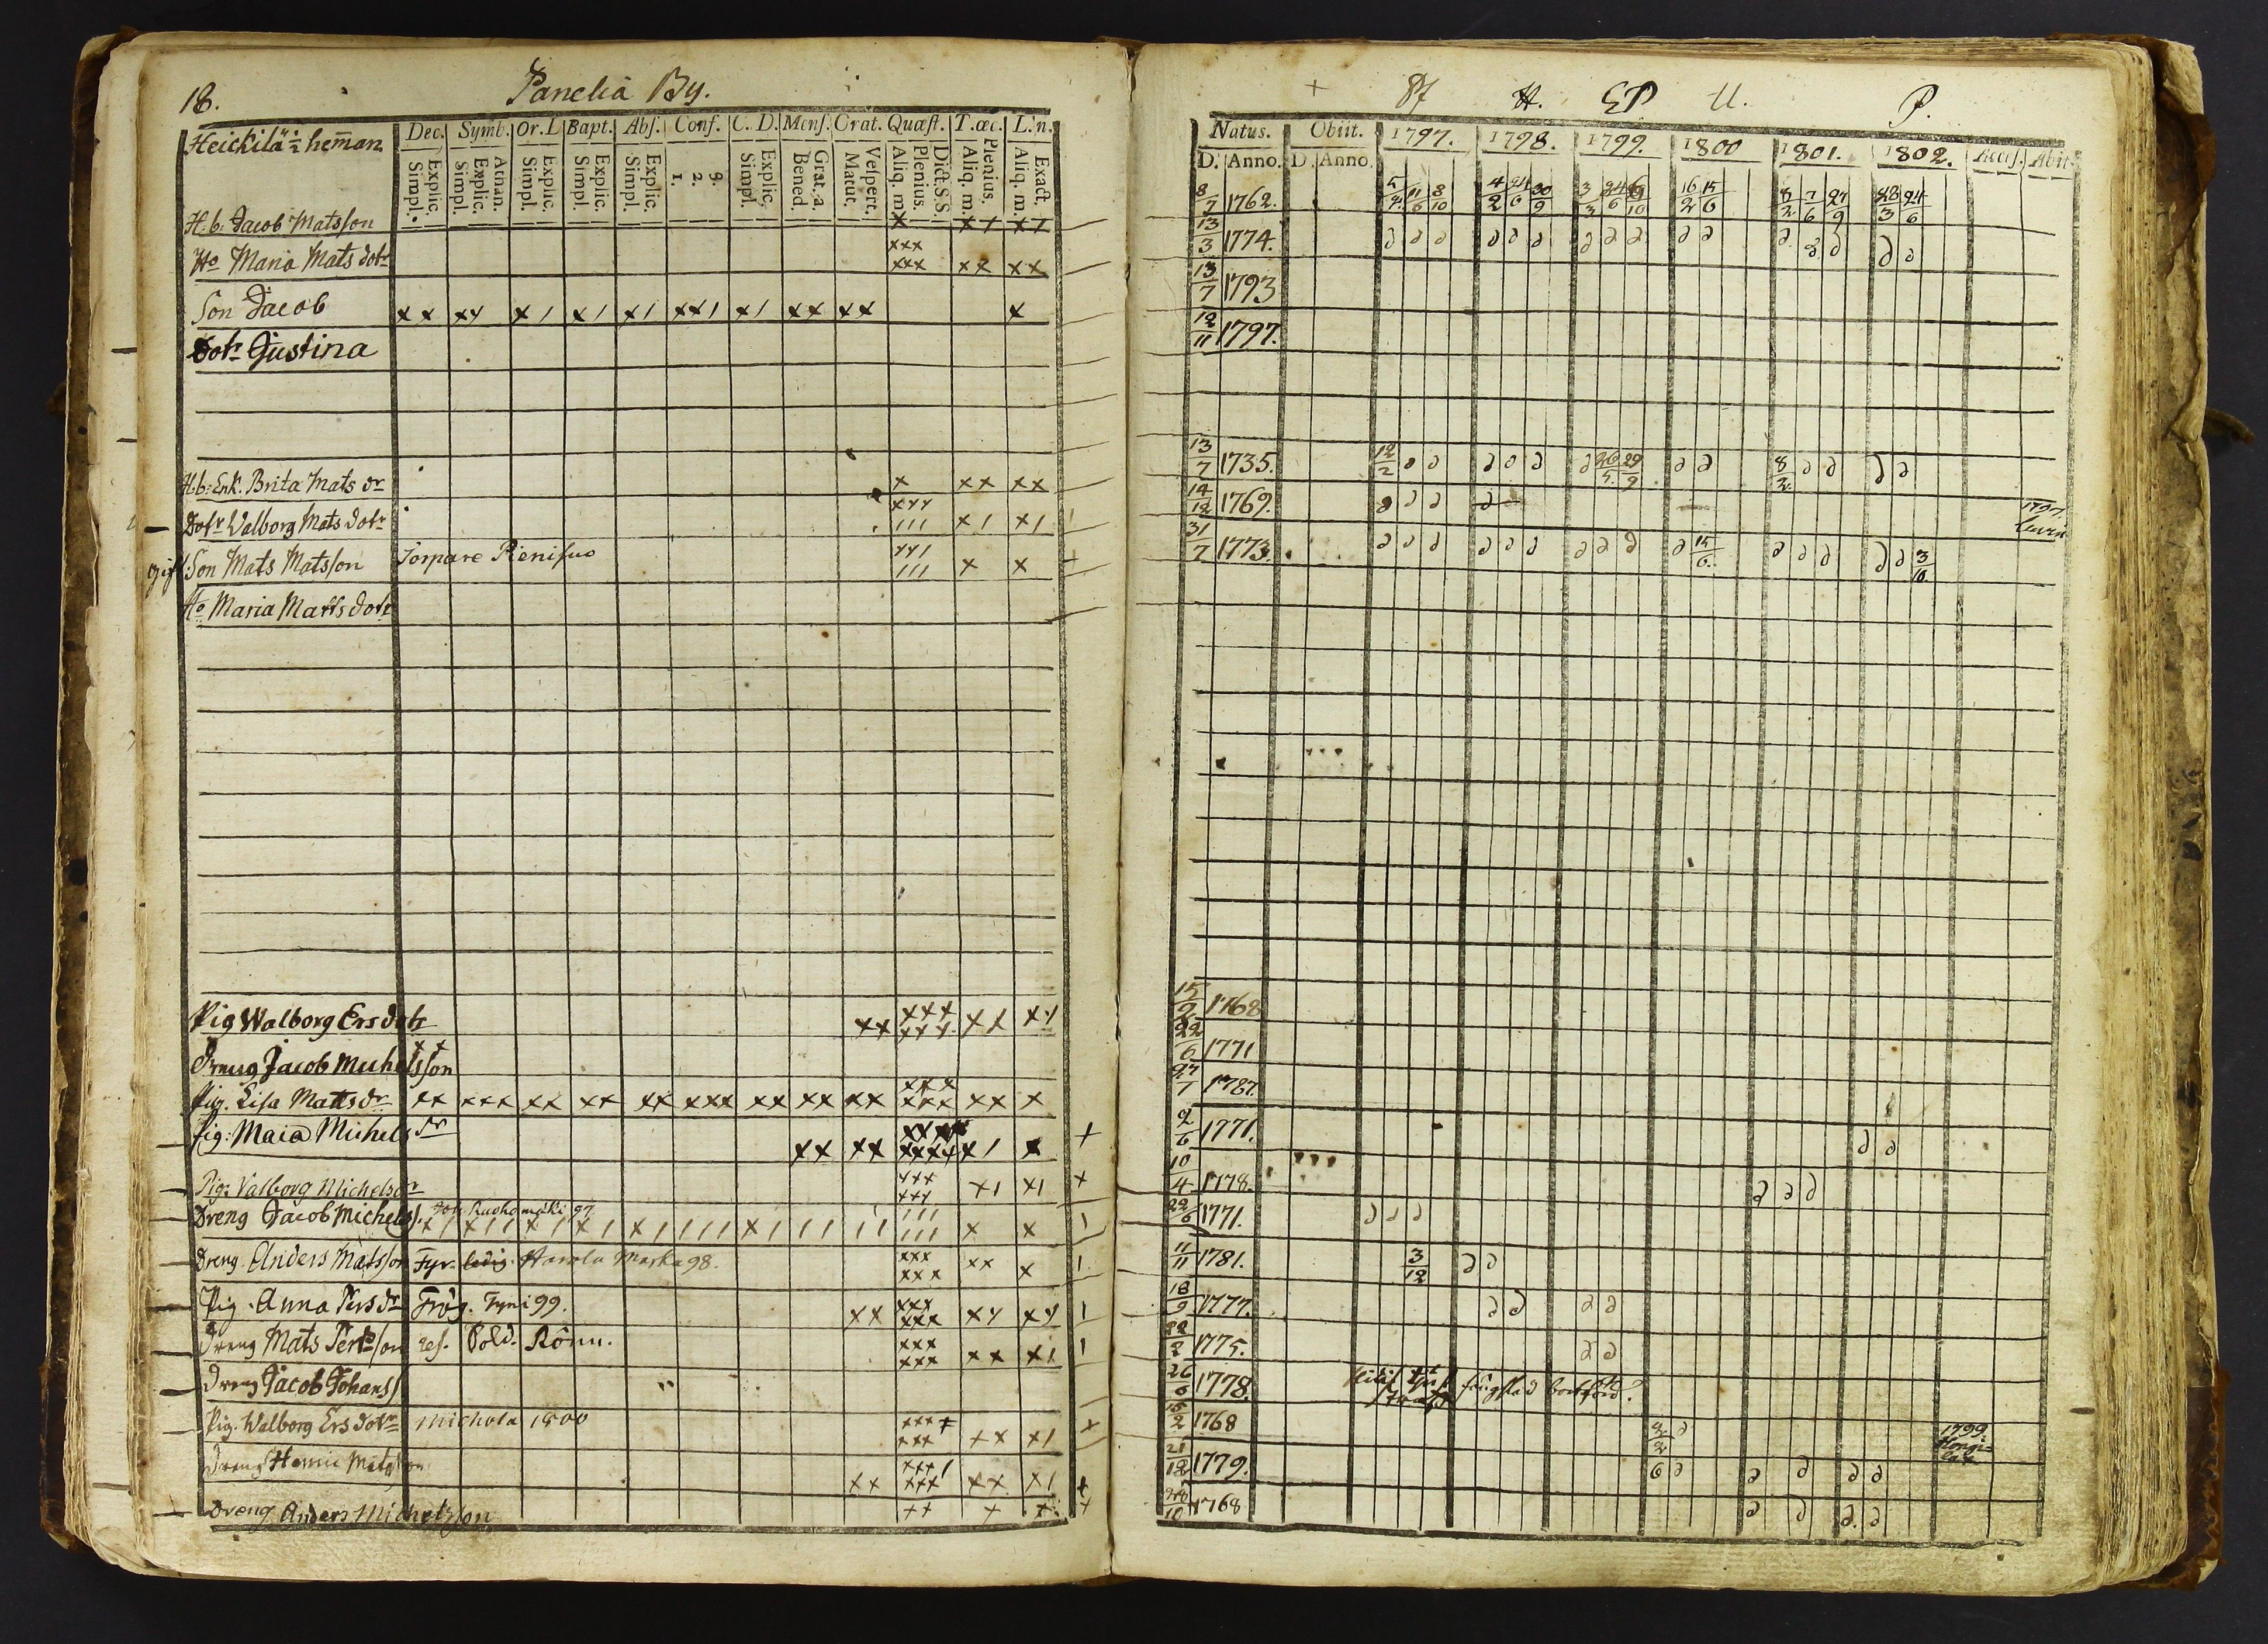 18. Panelia By.
Heickilä ½ heman
Dec. Symb. Or. L Bapt. Abs. Conf. C. D. Mens. Orat. Quæst. T. œc. L. n.
Explic. Simpl. Athan. Explic. Simpl. Explic. Simpl. Explic. Simpl. Explic. Simpl. 3. 2. 1. Explic. Simpl. Grat. a. Bened. Vespert. Matut. Dict. S. S. Plenius. Aliq. m. Plenius. Aliq. m. Exact. Aliq. m.
H. b. Jacob Matsson x x / x /
Ho Maria Mats dotr xxx xxx xx xx
Son Jacob xx xx x/ x/ x/ xx/ x/ xx xx x
Dotr Justina
H.b: Enk. Brita Mats dr x xx xx
Dotr Walborg Mats dotr xxx /// x/ x/
gift Son Mats Matsson Torpare xx/ /// x x
Ho Maria Matts dotr
Pig Walborg Ers dotr xx xxx xxx xx xx
Dreng Jacob Michelsson
Pig. Lisa Matts dr xx xxx xx xx xx xxx xx xx xx xxx xxx xx x
Pig: Maia Michels dr xx xx xxxx x/ x
Pig: Valborg Michelsdr xxx xxx x/ x/
Dreng Jacob Michelss. 97
Dreng Anders Matsson Harola 98. xxx xxx xx x
Pig. Anna Pers dr 99. xx xxx xxx xx xx
Dreng Mats Persson Sold. Rönn. xxx xxx xx x/
Dreng Jacob Johanss
Pig. Walborg Ers dotr Michola 1800 xxxx xxx xx x/
Dreng Matsson xx xxx/ xxx xx x/
Dreng Anders Michelsson xx x x
H. EP U. P.
Natus. Obiit. 1797. 1798. 1799. 1800 1801. 1802. Access. Abit.
D. Anno. D. Anno.
8/7 1762. 5/4 11/6 8/10 4/2 24/6 30/9 3/3 24/6 6/10 16/2 15/6 8/2 7/6 27/9 28/3 24/6
13/3 1774.
13/7 1793
12/11 1797.
13/7 1735. 12/2 26/5 29/9 8/2
14/12 1769. 1797.
31/7 1773. 15/6. 3/10
15/2 1768
22/6 1771
27/1 1787.
2/6 1771.
10/4 1778.
22/6 1771.
11/11 1781. 3/12
18/9 1777.
22/2 1775.
26/6 1778.
15/2 1768 2/2 1799.
21/12 1779. 6
28/10 1768